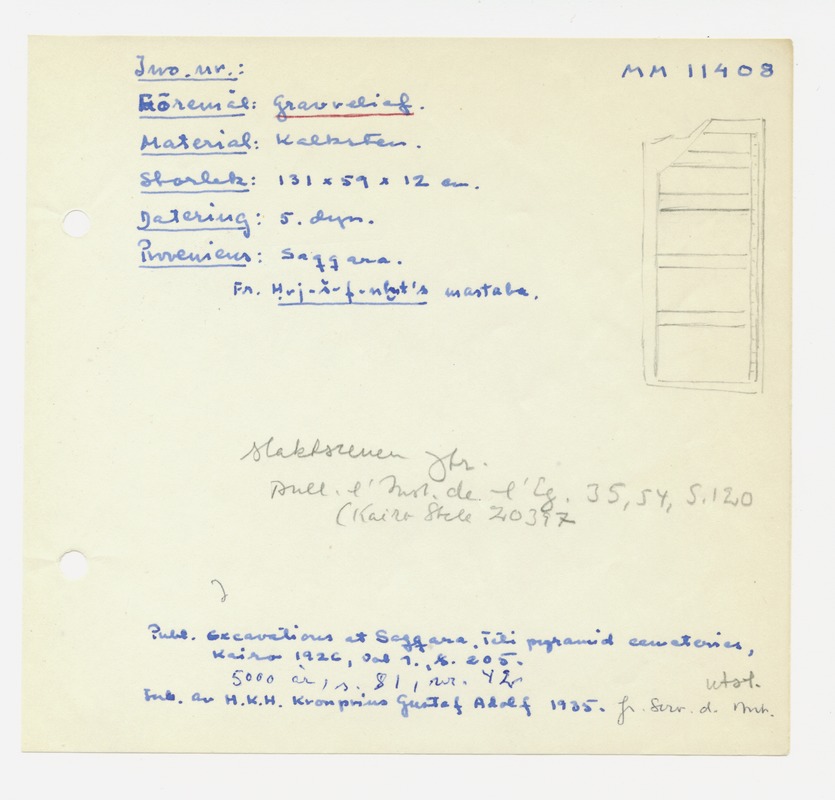 Inv. nr.: MM 11408
Föremål: Gravrelief.
Material: Kalksten.
Storlek: 131 x 59 x 12 cm.
Datering: 5. dyn.
Proveniens: Saqqara.
Fr. Ḥ.j-š.f-nḫt's mastaba.
slaktscenen jfr.
Bull. l'Inst. de l'Eg. 35, 54, S. 120
(Kairo Stele 20397
Publ. Excavations at Saqqara, Teti pyramid cemeteries,
Kairo 1926, Vol 1., S. 205.
5000 år, s. 81, nr. 42
utst.
Ink. av H.K.H. Kronprins Gustaf Adolf 1935. fr. Serv. d. Ant.